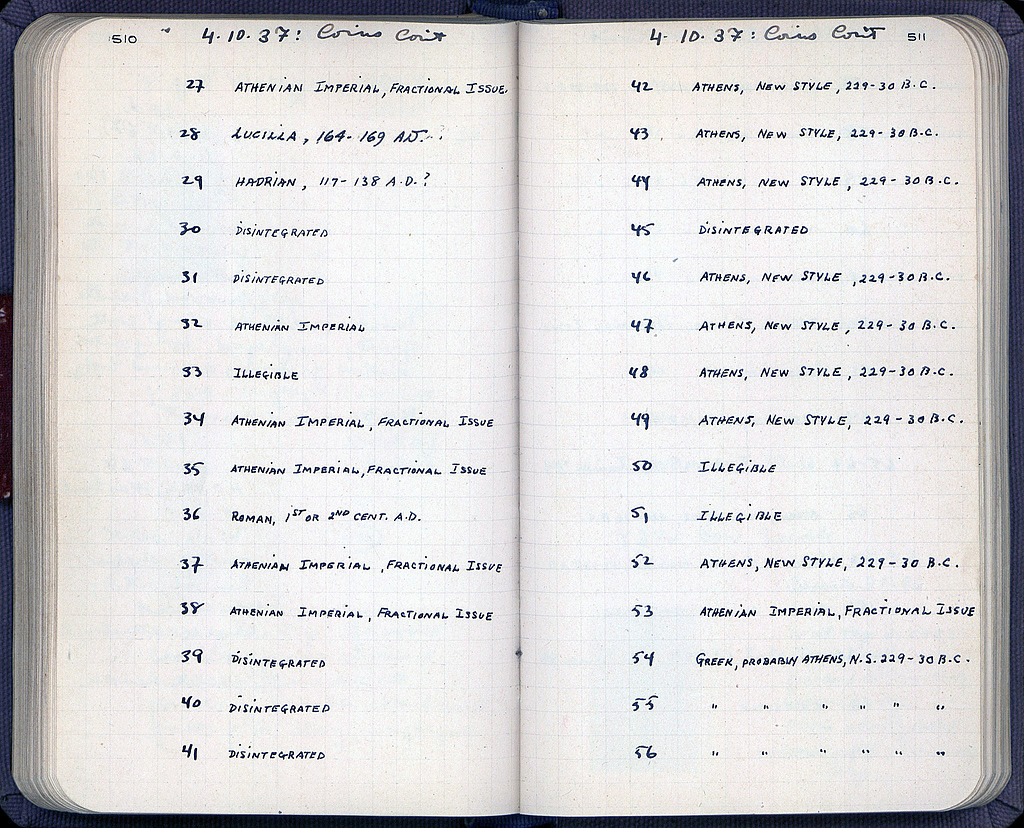 510 4·10·37: Coins Con't
27 ATHENIAN IMPERIAL, FRACTIONAL ISSUE.
28 LUCILLA, 164-169 A.D. ?
29 HADRIAN, 117-138 A.D.?
30 DISINTEGRATED
31 DISINTEGRATED
32 ATHENIAN IMPERIAL
33 ILLEGIBLE
34 ATHENIAN IMPERIAL, FRACTIONAL ISSUE
35 ATHENIAN IMPERIAL, FRACTIONAL ISSUE
36 ROMAN, 1ST OR 2ND CENT. A.D.
37 ATHENIAN IMPERIAL, FRACTIONAL ISSUE
38 ATHENIAN IMPERIAL, FRACTIONAL ISSUE
39 DISINTEGRATED
40 DISINTEGRATED
41 DISINTEGRATED
4·10·37: Coins Con't 511
42 ATHENS, NEW STYLE, 229-30 B.C.
43 ATHENS, NEW STYLE, 229-30 B.C.
44 ATHENS, NEW STYLE, 229-30 B.C.
45 DISINTEGRATED
46 ATHENS, NEW STYLE, 229-30 B.C.
47 ATHENS, NEW STYLE, 229-30 B.C.
48 ATHENS, NEW STYLE, 229-30 B.C.
49 ATHENS, NEW STYLE, 229-30 B.C.
50 ILLEGIBLE
51 ILLEGIBLE
52 ATHENS, NEW STYLE, 229-30 B.C.
53 ATHENIAN IMPERIAL, FRACTIONAL ISSUE
54 GREEK, PROBABLY ATHENS, N.S. 229-30 B.C.
55 " " " " " "
56 " " " " " "